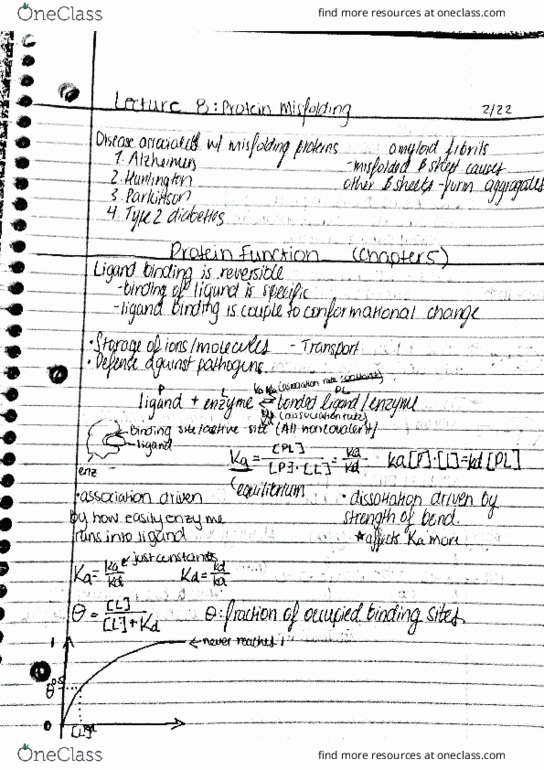 OneClass
find more resources at oneclass.com
Lecture 8: Protein Misfolding 2/22
Disease associated w/ misfolding proteins
1. Alzheimers
2. Huntington
3. Parkinson
4. Type 2 diabetes
amyloid fibrils
-misfolded β sheet causes
other β sheets -form aggregates
Protein Function (Chapter 5)
Ligand binding is reversible
-binding of ligand is specific
-ligand binding is couple to conformational change
•Storage of ions/molecules - Transport
•Defense against pathogens
P L Ka (association rate constant) PL
ligand + enzyme ⇌ bonded ligand/enzyme
Kd
binding site/active site (All noncovalent)
ligand
enz
Ka = [PL] / [P]·[L] = ka / kd ka[P]·[L]=kd[PL]
equilibrium
•association driven
by how easily enzyme
runs into ligand
•dissotiation driven by
strength of bend.
★affects Ka more
Ka = ka / kd ← just constants Kd = kd / ka
θ = [L] / [L] + Kd θ: fraction of occupied binding sites
1 ← never reaches 1
θ 0.5
0 [L]
OneClass
find more resources at oneclass.com